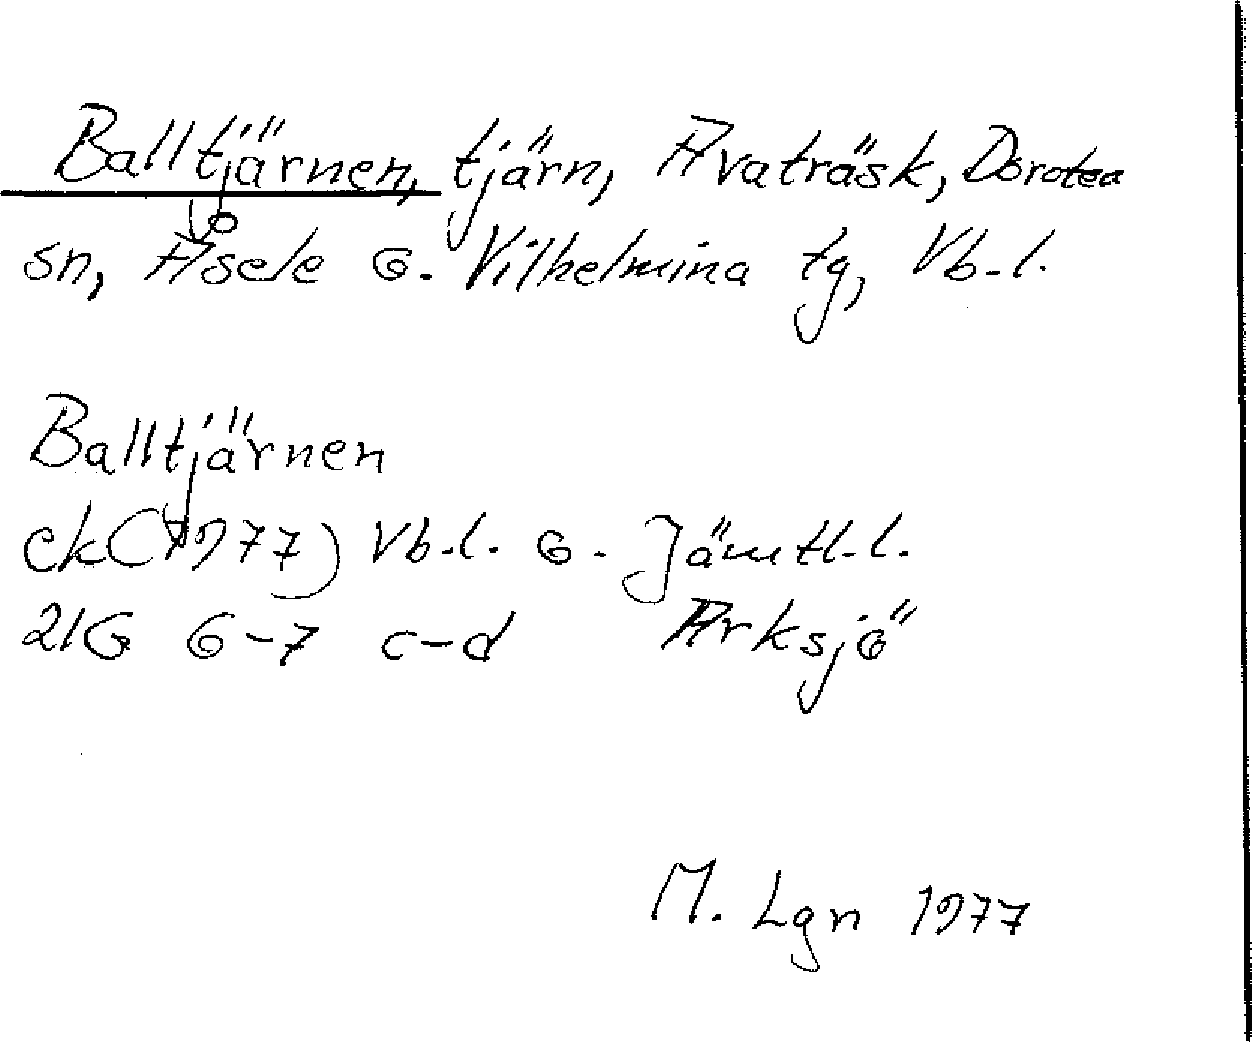 Balltjärnen, tjärn, Avaträsk, Dorotea
sn, Åsele o. Vilhelmina tg, Vb-l.
Balltjärnen
ek(1977) Vb.l. o. Jämtl-l.
21G 6-7 c-d Arksjö
M. Lgn 1977